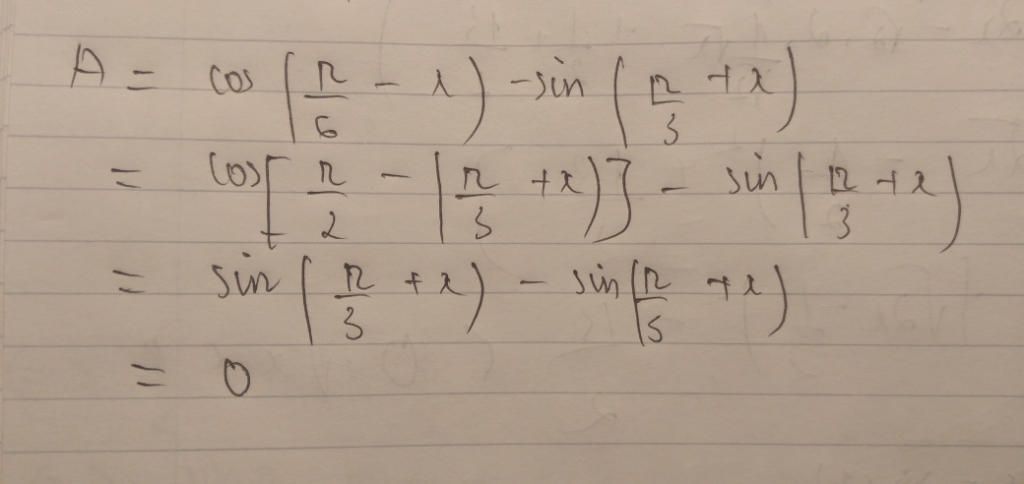 A = cos(π/6 - x) - sin(π/3 + x)
= cos[π/2 - (π/3 + x)] - sin(π/3 + x)
= sin(π/3 + x) - sin(π/5 + x)
= 0